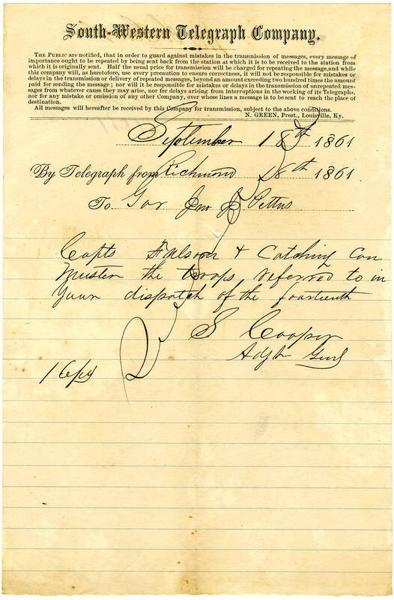 South-Western Telegraph Company.
THE PUBLIC are notified, that in order to guard against mistakes in the transmission of messages, every message of
importance ought to be repeated by being sent back from the station at which it is to be received to the station from
which it is originally sent. Half the usual price for transmission will be charged for repeating the message, and while
this company will, as heretofore, use every precaution to ensure correctness, it will not be responsible for mistakes or
delays in the transmission or delivery of repeated messages, beyond an amount exceeding two hundred times the amount
paid for sending the message; nor will it be responsible for mistakes or delays in the transmission of unrepeated messages
from whatever cause they may arise, nor for delays arising from interruptions in the working of its Telegraphs,
nor for any mistake or omission of any other Company, over whose lines a message is to be sent to reach the place of
destination.
All messages will hereafter be received by this Company for transmission, subject to the above conditions.
N. GREEN, Prest., Louisville, Ky.
September 18th 1861
By Telegraph from Richmond 18th 1861
To Gov Jno J Pettus
Capts & Catching Can
muster the troops referred to in
your dispatch of the fourteenth
S Cooper
Adjt Genl